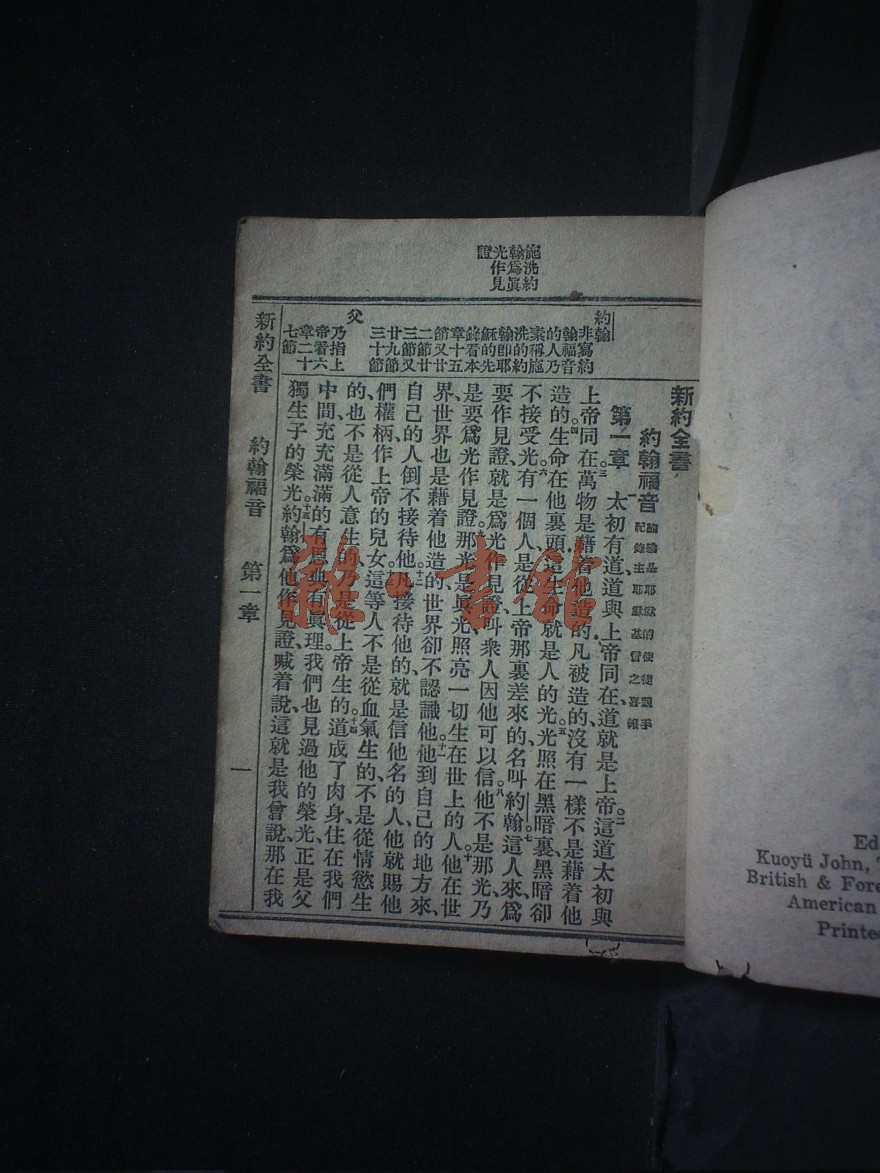 施洗約
翰爲眞
光作見
證
約翰
非寫約
翰福音
的人乃
素稱施
洗的約
翰卽耶
穌的先
錄看本
章十五
節又廿
二節廿
三節又
廿九節
三十節
父
乃指上
帝看六
章二十
七節
新約全書
約翰福音 約翰是耶穌的使徒親手
紀錄主耶穌基督之喜報
第一章 太初有道、道與上帝同在、道就是上帝。二這道太初與
上帝同在。三萬物是藉着他造的、凡被造的、沒有一樣不是藉着他
造的。四生命在他裏頭、這生命就是人的光。五光照在黑暗裏、黑暗卻
不接受光。六有一個人、是從上帝那裏差來的、名叫約翰。七這人來、爲
要作見證、就是爲光作見證、叫衆人因他可以信。八他不是那光、乃
是要爲光作見證。九那光是眞光、照亮一切生在世上的人。十他在世
界、世界也是藉着他造的、世界卻不認識他。十一他到自己的地方來、
自己的人倒不接待他。十二凡接待他的、就是信他名的人、他就賜他
們權柄、作上帝的兒女。十三這等人不是從血氣生的、不是從情慾生
的、也不是從人意生的、乃是從上帝生的。十四道成了肉身、住在我們
中間、充充滿滿的有恩典有眞理、我們也見過他的榮光、正是父
獨生子的榮光。十五約翰爲他作見證、喊着說、這就是我曾說、那在我
新約全書 約翰福音 第一章 一
雜·書館
Ed
Kuoyü John,
British & Fore
American
Printe